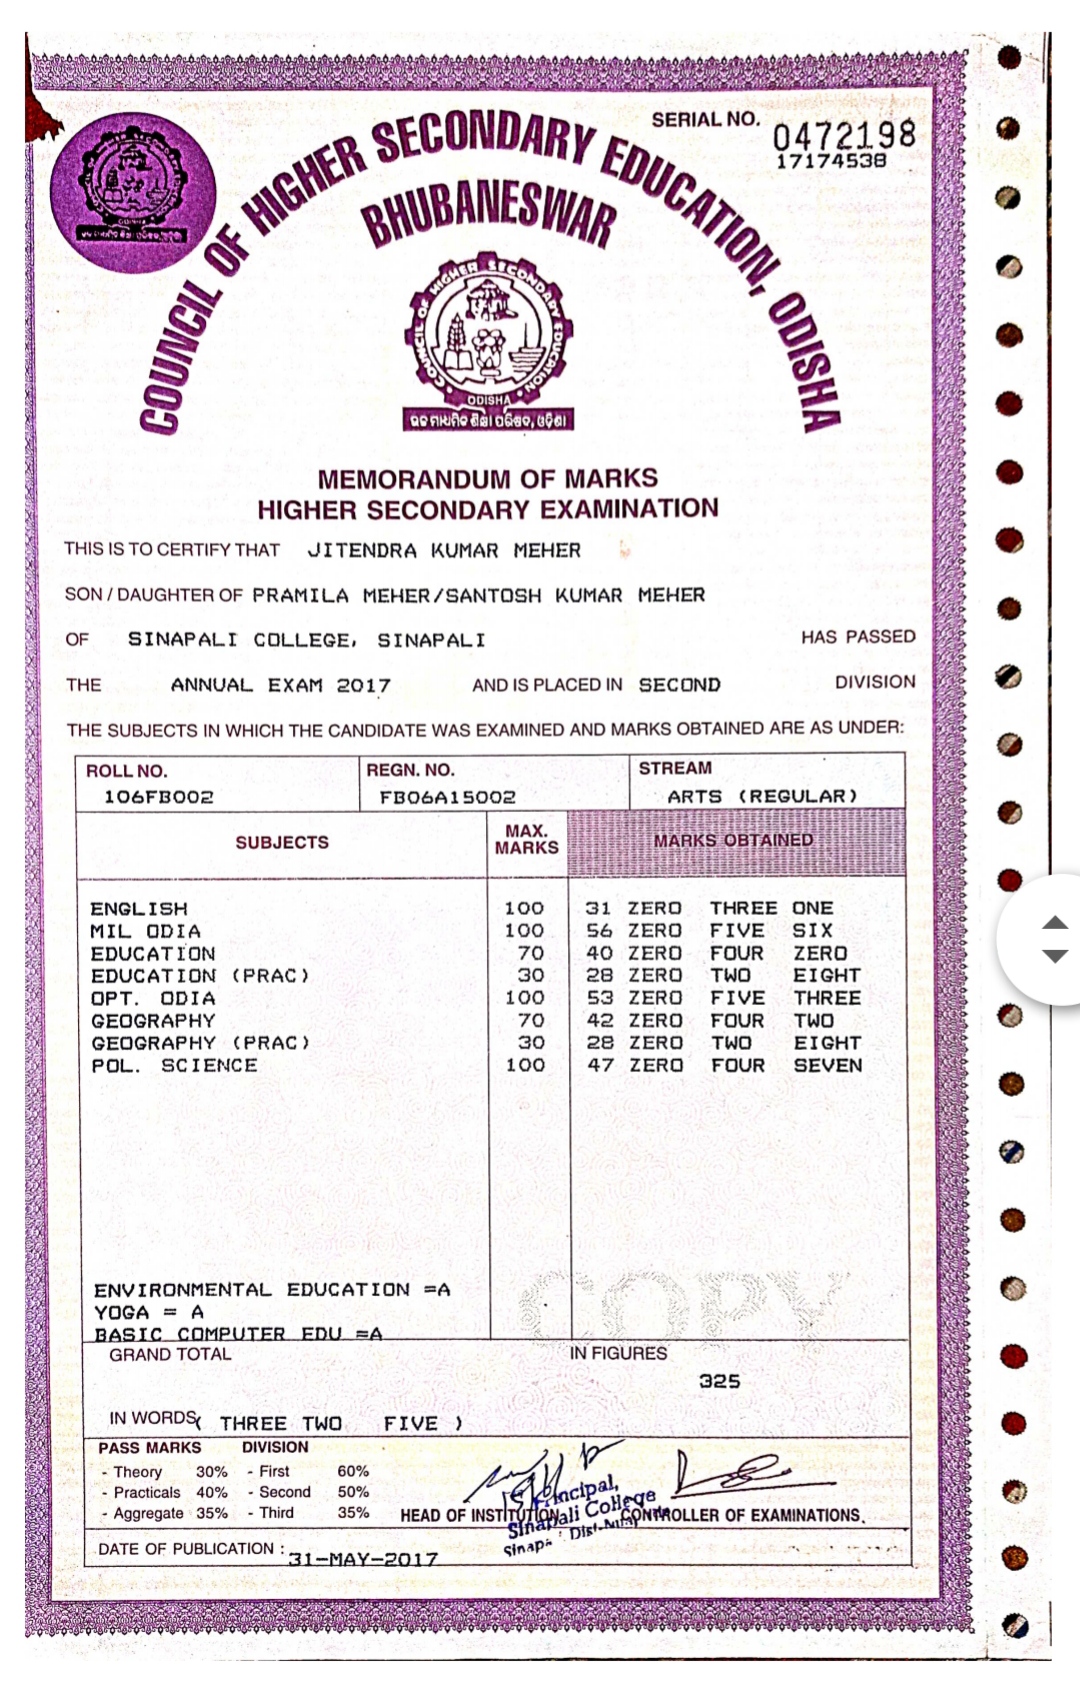 SERIAL NO. 0472198
17174538
COUNCIL OF HIGHER SECONDARY EDUCATION, ODISHA
BHUBANESWAR
COUNCIL OF HIGHER SECONDARY EDUCATION
ODISHA
ଉଚ୍ଚ ମାଧ୍ୟମିକ ଶିକ୍ଷା ପରିଷଦ, ଓଡ଼ିଶା
MEMORANDUM OF MARKS
HIGHER SECONDARY EXAMINATION
THIS IS TO CERTIFY THAT JITENDRA KUMAR MEHER
SON / DAUGHTER OF PRAMILA MEHER/SANTOSH KUMAR MEHER
OF SINAPALI COLLEGE, SINAPALI HAS PASSED
THE ANNUAL EXAM 2017 AND IS PLACED IN SECOND DIVISION
THE SUBJECTS IN WHICH THE CANDIDATE WAS EXAMINED AND MARKS OBTAINED ARE AS UNDER:
ROLL NO. REGN. NO. STREAM
106FB002 FB06A15002 ARTS (REGULAR)
SUBJECTS MAX. MARKS MARKS OBTAINED
ENGLISH 100 31 ZERO THREE ONE
MIL ODIA 100 56 ZERO FIVE SIX
EDUCATION 70 40 ZERO FOUR ZERO
EDUCATION (PRAC) 30 28 ZERO TWO EIGHT
OPT. ODIA 100 53 ZERO FIVE THREE
GEOGRAPHY 70 42 ZERO FOUR TWO
GEOGRAPHY (PRAC) 30 28 ZERO TWO EIGHT
POL. SCIENCE 100 47 ZERO FOUR SEVEN
COPY
ENVIRONMENTAL EDUCATION =A
YOGA = A
BASIC COMPUTER EDU =A
GRAND TOTAL IN FIGURES
325
IN WORDS ( THREE TWO FIVE )
PASS MARKS DIVISION
- Theory 30% - First 60%
- Practicals 40% - Second 50%
- Aggregate 35% - Third 35%
HEAD OF INSTITUTION CONTROLLER OF EXAMINATIONS.
Principal,
Sinapali College
DATE OF PUBLICATION : 31-MAY-2017